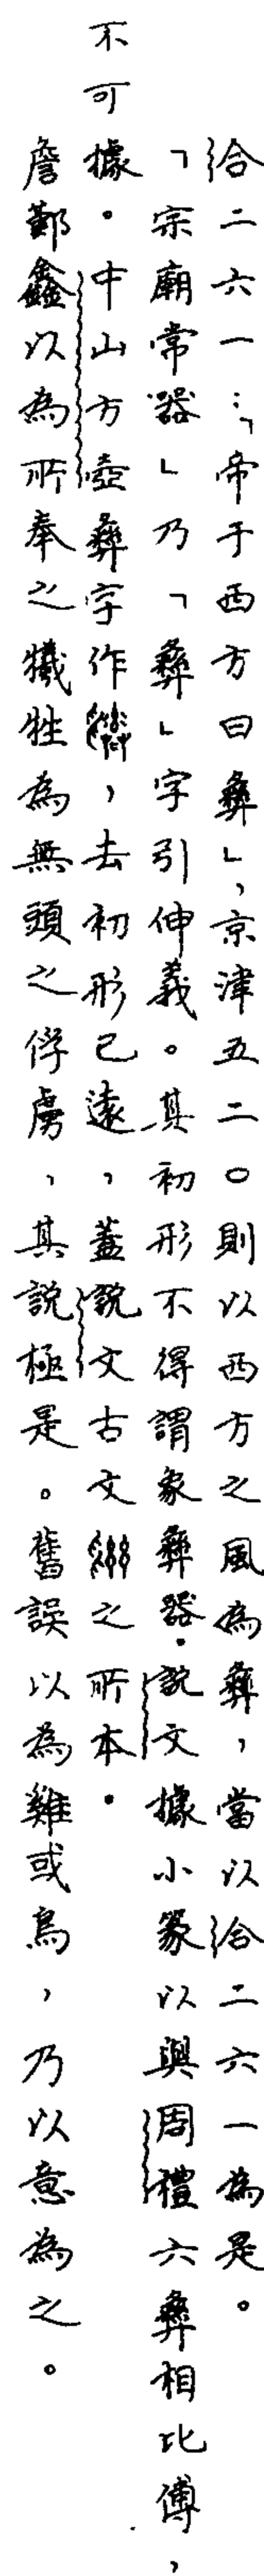 合二六一：「帝于西方曰彝」，京津五二〇則以西方之風為彝，當以合二六一為是。
「宗廟常器」乃「彝」字引伸義。其初形不得謂象彝器．說文據小篆以與周禮六彝相比傅，
不可據。中山方壺彝字作，去初形已遠，蓋說文古文之所本．
詹鄞鑫以為所奉之犧牲為無頭之俘虜，其說極是。舊誤以為雞或鳥，乃以意為之。